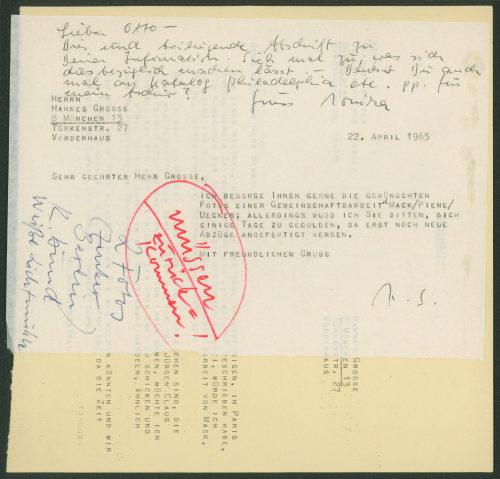 Lieber Otto –
Dies und beiliegende Abschrift zu
Deiner Information. Sieh mal zu, was sich
diesbezüglich machen lässt – Denkst Du auch
mal an Katalog Philadelphia etc. pp. für
mein ?
Gruss Monika
HERRN
HANNES GROSSE
8 MÜNCHEN 13
TÜRKENSTR. 27
VORDERHAUS
22. APRIL 1965
SEHR GEEHRTER HERR GROSSE,
ICH BESORGE IHNEN GERNE DIE GEWÜNSCHTEN
FOTOS EINER GEMEINSCHAFTSARBEIT MACK/PIENE/
UECKER; ALLERDINGS MUSS ICH SIE BITTEN, SICH
EINIGE TAGE ZU GEDULDEN, DA ERST NOCH NEUE
ABZÜGE ANGEFERTIGT WERDEN.
MIT FREUNDLICHEM GRUSS
müssen
zurück=
kommen!
2 Fotos
Berlin)
Weiße Lichtmühle
GROSSE
13
27
EIGEN, IN PARIS
ESCHRIEBEN HABE,
I, WÜRDE ICH
ARBEIT VON MACK,
CHEN SIND, DIE
JÜRGEN CLAUS
MEN, MÖCHTE ICH
U SCHICKEN UND
DELN, ÄHNLICH
EN KÖNNTEN UND MIR
DA DIE ZEIT